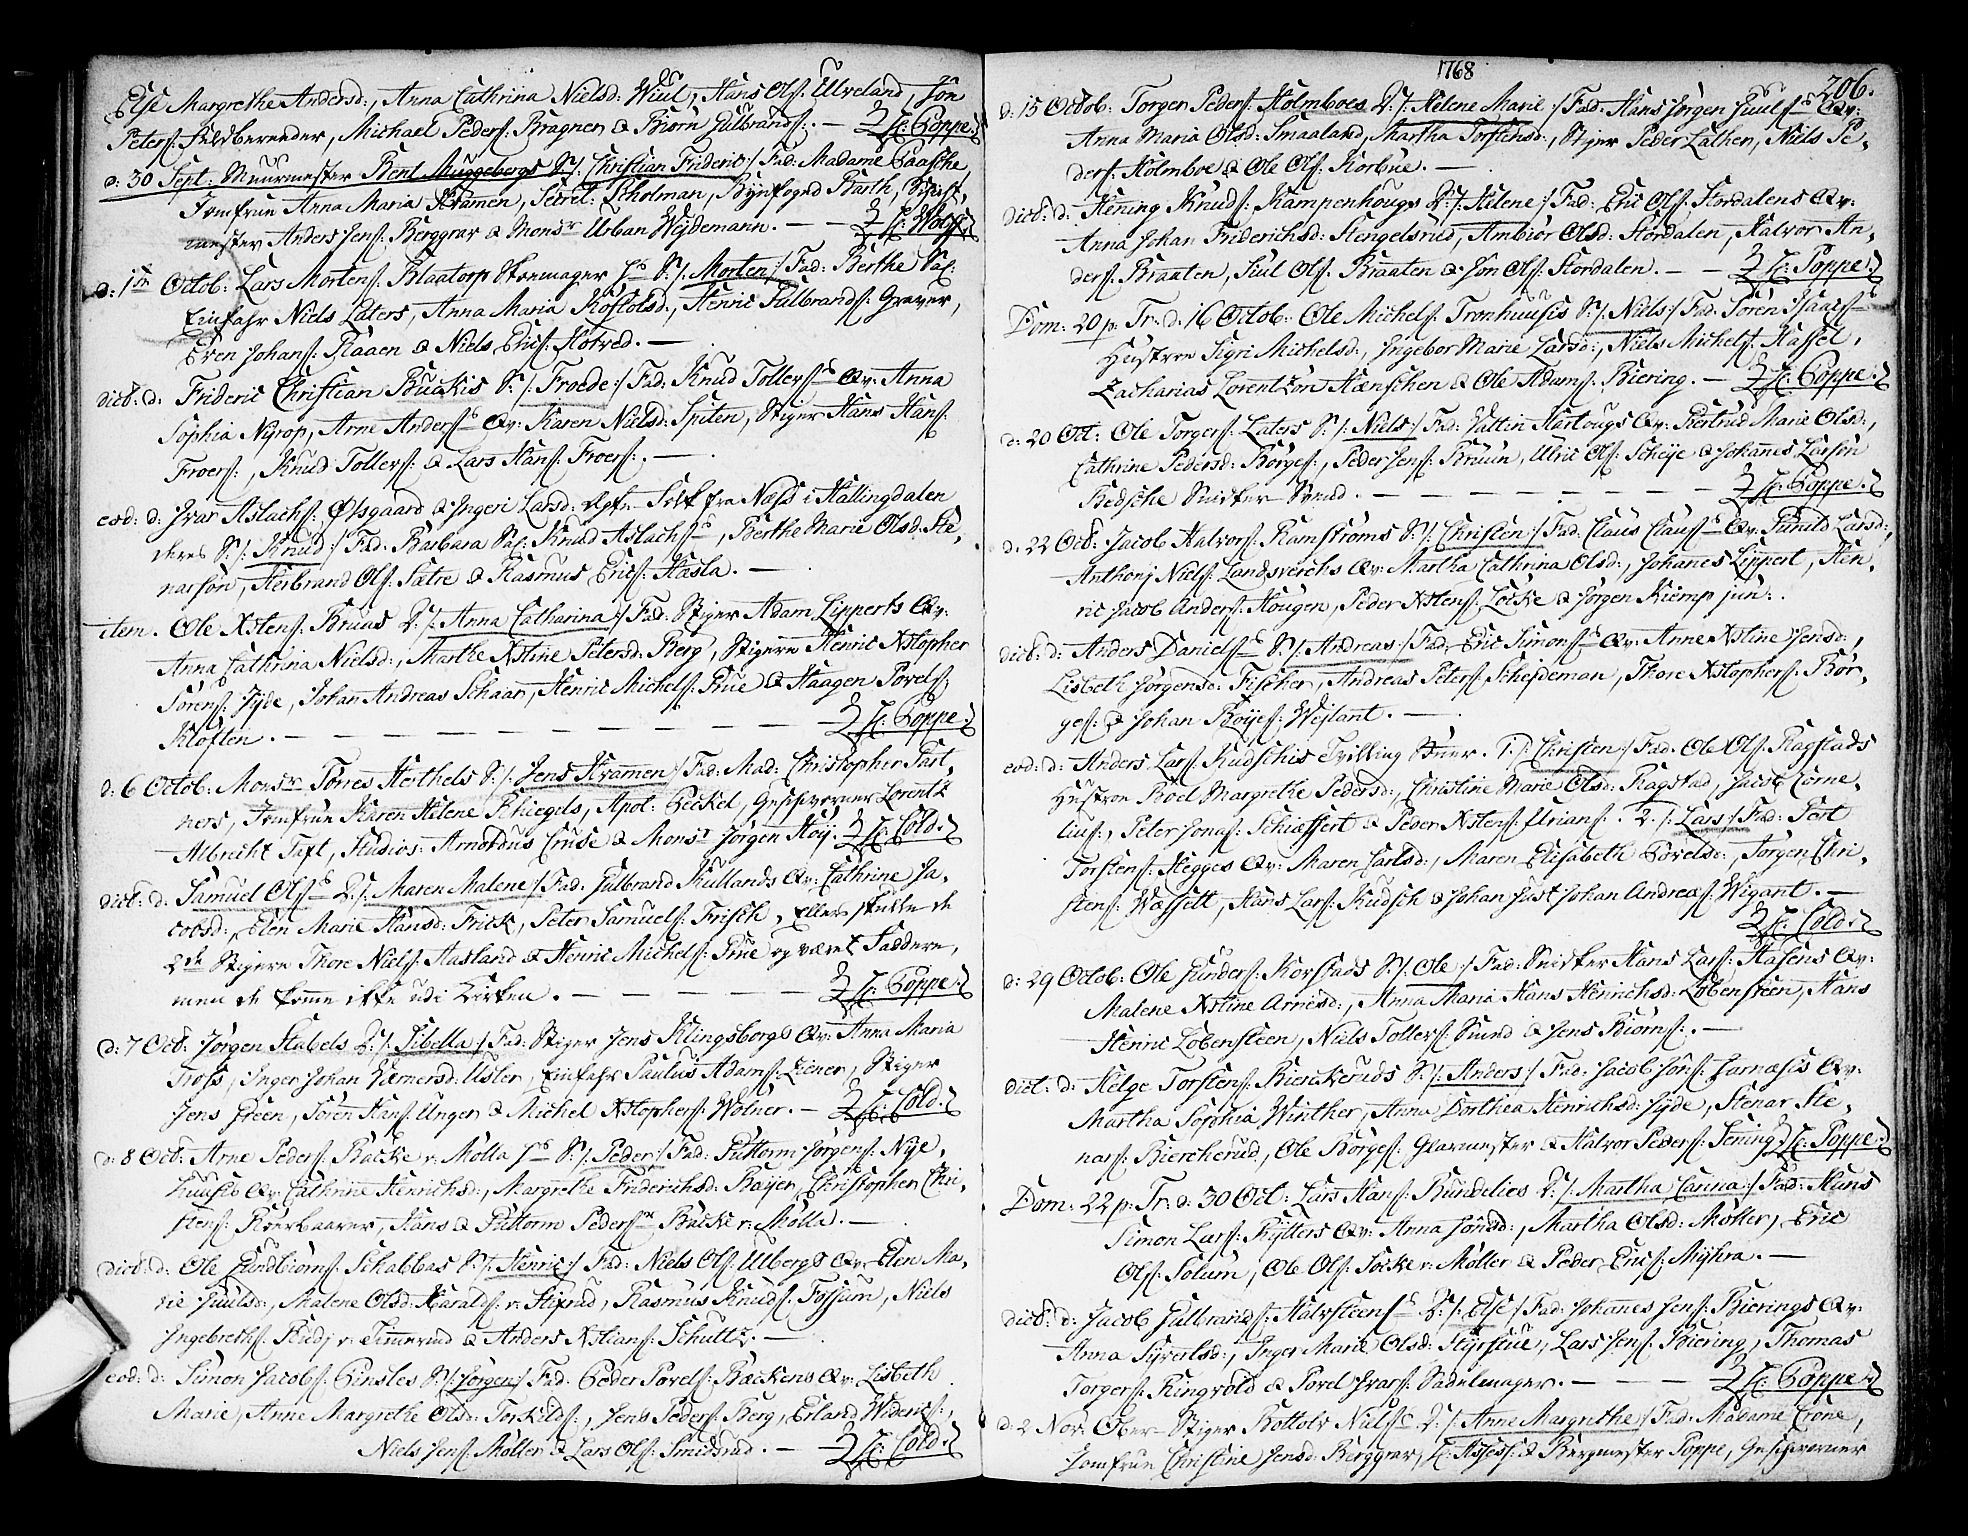 Else Margrethe Andersd:, Anna Cathrina Nielsd: Wiul, Hans Ols: Ulveland, Jon
Peters: Feldbereeder, Michael Peders: Bragnes & Biørn Gulbrands:. — H: Poppe.
d: 30 Sept: Muurmester Bent Muggebergs S:/: Christian Frideric :/ Fad: Madame Paasche,
Jomfrue Anna Maria Kramen, Secret: Scholman, Bÿnfoged Barth, Skiſt,
mester Anders Jens: Berggrav & Monsr Urban Weÿdemann. — H: Woxe.
d: 1ste Octob: Lars Mortens: Blaatorp Skomager S:/: Morten :/ Fad: Berthe Sal:
Einfahr Niels Laters, Anna Maria Kostolsd:, Henric Gulbrands: Graver,
Even Johans: Raaen & Niels Erics: Hotved. —
dict: d: Frideric Christian Buckis S:/: Froede :/ Fad: Knud Tollersens Qv: Anna
Sophia Nÿrop, Arne Andersens Qv: Karen Nielsd: Spiten, Stiger Hans Hans:
Froers:, Knud Tollers: & Lars Hans: Froers:. —
eod: d: Ivar Aslachs: Øxsgaard & Ingeri Larsd: Folk fra Næss i Hallingdalen
deres S:/: Knud :/ Fad: Barbara Sal: Knud Aslachs:, Berthe Marie Olsd: Ste,
narsøn, Herbrand Ols: Satre & Rasmus Erics: Hasla. —
item. Ole Xstens: Bruns D:/: Anna Catharina :/ Fad: Stiger Adam Lipperts Qv:
Anna Cathrina Nielsd:, Marthe Xstine Petersd: Berg, Stigern Henric Xstopher
Sørens: Jÿde, Johan Andreas Schaar, Henric Michels: Prue & Haagen Povels:
Kloften. — H: Poppe.
d: 6 Octob: Monsr Torres Herthels S:/: Jens Kramen :/ Fad: Mad: Christopher Fast,
ners, Jomfrue Karen Helene Schiegels, Apot: Peckel, Geschworner Lorentz
Albrecht Taft, Studios: Arnoldus Cruse & Monsr Jørgen Høÿ. H: Cold.
dict: d: Samuel Ols: D:/: Maren Malene :/ Fad: Gulbrand Kullands Qv: Cathrine Ja,
cobsd:, Elen Marie Hansd: Frick, Peter Samuels: Frisch, Ellers skulde de
2de Stigere Thore Niels: Aasland & Henric Michels: Prue og været Faddere,
men de kome ikke udi Kirken. — H: Poppe.
d: 7 Oct: Jørgen Stabels D:/: Sibella :/ Fad: Stiger Jens Klingsborgs Qv: Anna Maria
Tross, Inger Johan Wernersd: Usler, Einfahr Paulus Adams: Ziener, Stiger
Jens Green, Søren Hans: Unger & Michel Xstophers: Wolner. — H: Cold.
d: 8 Oct: Arne Peders: Backe v: Mølla S:/: Peder :/ Fad: Guttorm Jørgens: Nÿe,
huusis Qv: Cathrine Henrichsd:, Margrethe Friderichsd: Baÿer, Christopher Chri,
stens: Roerbaarer, Hans & Guttorm Peders: Backe v: Mølla. —
dict: d: Ole Gundbiørns: Schabbas S:/: Henric :/ Fad: Niels Ols: Ulbergs Qv: Elen Ma,
rie Juulsd:, Malene Olsd: Haralds: v: Stifrud, Rasmus Knuds: Fossum, Niels
Ingebreths: Rudj v: Timerud & Anders Xstians: Schultz. —
eod: d: Simon Jacobs: Ginsles S:/: Jørgen :/ Fad: Peder Povels: Backens Qv: Lisbeth
Marie, Anne Margrethe Olsd: Torkilds:, Jens Peders: Berg, Erland Widerics:,
Niels Jens: Møller & Lars Ols: Smidsrud. — H: Cold.
1768
206.
d: 15 Octob: Torger Peders: Holmboes D:/: Helene Marie :/ Fad: Hans Jørgen Juuls: Qv:
Anna Maria Olsd: Smaaland, Martha Torstensd:, Stiger Peder Lathen, Niels Pe,
ders: Holmboe & Ole Ols: Korbue. —
dict: d: Hening Knuds: Kampenhougs D:/: Helene :/ Fad: Eric Ols: Stordalens Qv:
Anna Johan Friderichsd: Hengelsrud, Ambiør Olsd: Stordalen, Halvor An,
ders: Braaten, Juul Ols: Braaten & Jon Ols: Stordalen. — H: Poppe.
Dom: 20 p: Tr: d: 16 Octob: Ole Michels: Tronhuusis S:/: Niels :/ Fad: Søren Isaacs:
Hustroe Sigri Michelsd:, Ingebor Marie Larsd:, Niels Michels: Kassel,
Zacharias Lorentzøn Hænschen & Ole Adams: Biering. — H: Poppe.
d: 20 Oct: Ole Torgers: Laters S:/: Niels :/ Fad: Vittin Hartougs Qv: Giertrud Marie Olsd:,
Cathrine Pedersd: Børges:, Peder Jens: Bruun, Ulric Ols: Scheÿe & Johanes Larsøn
Bedsche Snidker Svend. — H: Poppe.
d: 22 Oct: Jacob Halvors: Ramstrøms S:/: Christen :/ Fad: Claus Claus: Qv: Gunild Larsd:,
Anthonj Niels: Landsverchs Qv: Martha Cathrina Olsd:, Johanes Lippert, Hen,
ric Jacob Anders: Hougen, Peder Xstens: Løcke & Jørgen Kiemp jun:.
dict: d: Anders Daniels: S:/: Andreas :/ Fad: Eric Simons: Qv: Anne Xstine Jensd:,
Lisbeth Jørgensd: Fischer, Andreas Peters: Scheÿdeman, Thore Xstophers: Bør,
ges: & Johan Bøÿes: Weÿlant. —
eod: d: Anders Lars: Kudschis Tvilling Søner. 1:/: Christen :/ Fad: Ole Ols: Ragstads
Hustroe Boel Margrethe Pedersd:, Christine Marie Olsd: Ragstad, Jacob Corne,
lius:, Peter Jonas: Schiæffert & Peder Xstens: Urians:. 2:/: Lars :/ Fad: Post
Torstens: Hegges Qv: Maren Carlsd:, Maren Elisabeth Povelsd:, Jørgen Chri,
stens: Wassett, Hans Lars: Kudsch & Johan Just Johan Andreas: Wigant. —
H: Cold.
d: 29 Octob: Ole Gunders: Korstads S:/: Ole :/ Fad: Snidker Hans Lars: Hasens Qv:
Malene Xstine Arnesd:, Anna Maria Hans Henrichsd: Løbensteen, Hans
Henric Løbensteen, Niels Tollers: Svend & Jens Biørns:. —
dict: d: Helge Torstens: Bierckeruds S:/: Anders :/ Fad: Jacob Jons: Jarnæsis Qv:
Martha Sophia Winther, Anna Dorthea Henrichsd: Jÿde, Stenar Ste,
nars: Bierckerud, Ole Børges: Glarmester & Halvor Peders: Jening H: Poppe.
Dom: 22 p: Tr: d: 30 Oct: Lars Hans: Bundelies D:/: Martha Carina :/ Fad: Hans
Simon Lars: Rÿtters Qv: Anna Jonsd:, Martha Olsd: Møller, Eric
Ols: Solum, Ole Ols: Løcke v: Møller & Peder Erics: Mÿhra. —
dict: d: Jacob Gulbrands: Halvsteens: D:/: Else :/ Fad: Johanes Jens: Bierings Qv:
Anna Sÿvertsd:, Inger Marie Olsd: Hÿrstue, Lars Jens: Biering, Thomas
Torgers: Ringvold & Povel Ivars: Sadelmager. — H: Poppe.
d: 2 Nov: Ober-Stiger Bottolv Niels: D:/: Anne Margrethe :/ Fad: Madame Crone,
Jomfrue Christine Jensd: Berggrav, H: Assess: & Bergmester Poppe, Geschworner